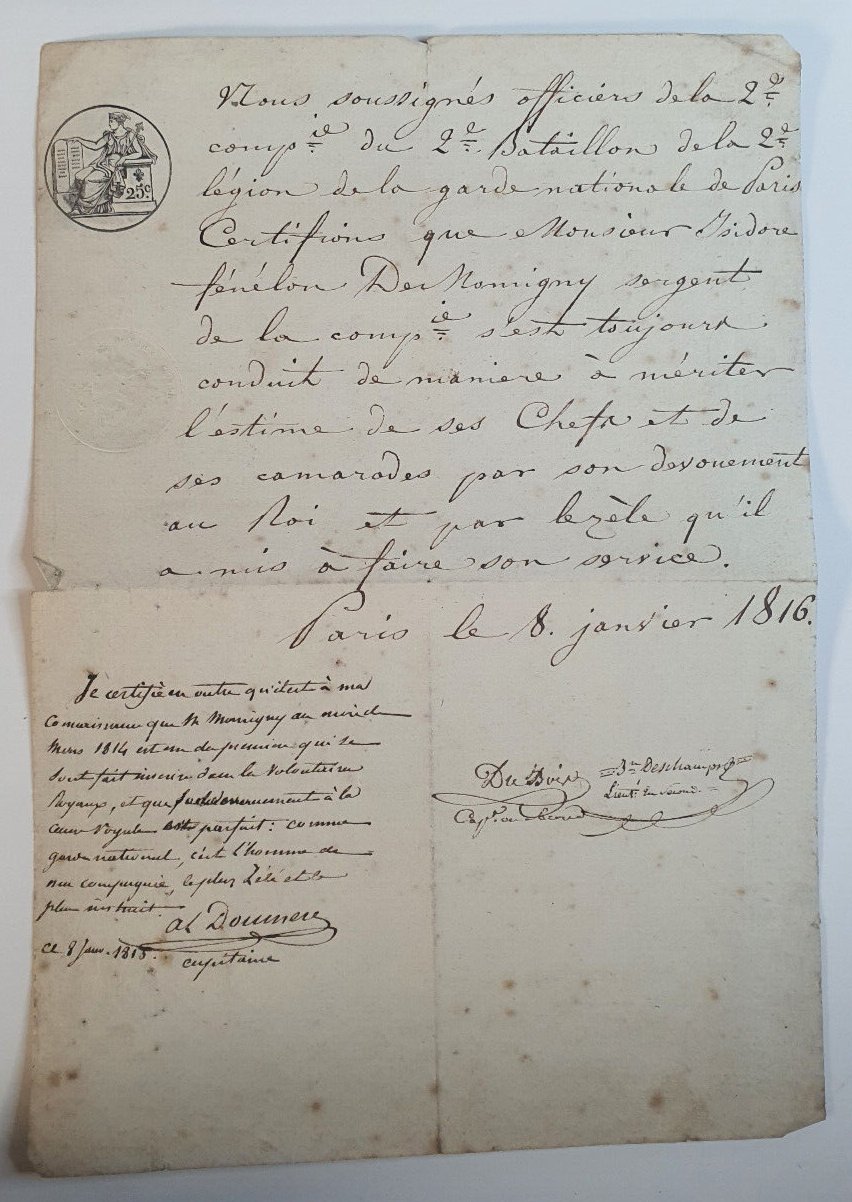 25c.
Nous soussignés officiers de la 2e
compie du 2e Bataillon de la 2e
légion de la garde nationale de Paris
Certifions que Monsieur Isidore
fénélon De Momigny sergent
de la compie s'est toujours
conduit de maniere à mériter
l'estime de ses Chefs et de
ses camarades par son devouement
au Roi et par le zèle qu'il
a mis à faire son service.
Paris le 8. janvier 1816.
Je certifie en outre qu'il est à ma
Connaissance que Mr Momigny au mois de
Mars 1814 est un des premiers qui se
sont fait inscrire dans les Volontaires
Royaux, et que son devouement à la
cause Royale est parfait: comme
garde national, c'est l'homme de
ma compagnie, le plus Zélé et le
plus instruit.
al Doumere
ce 8 Janv. 1816.
capitaine
Du Bois
Capne en second
Deschamps
Lieut. En second